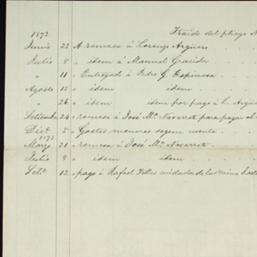 1872 Traido del pliego N
Junio 22 A remesa á Lorenzo Argüers
Julio 8 " idem á Manuel Garrido
" 11 " Entregado á Pedro G. Espinosa
Agosto 12 " idem idem
" 26 " idem idem por pago á L. Argüe
Setiembre 24 " remesa á José Mª Navarrete para pagar al
Dicº 5 " Gastos menores segun cuenta
1873
Marzo 21 " remesa á José Mª Navarrete
Julio 8 " idem idem
Setº 12 " pago á Rafael cuidado de la mina hasta